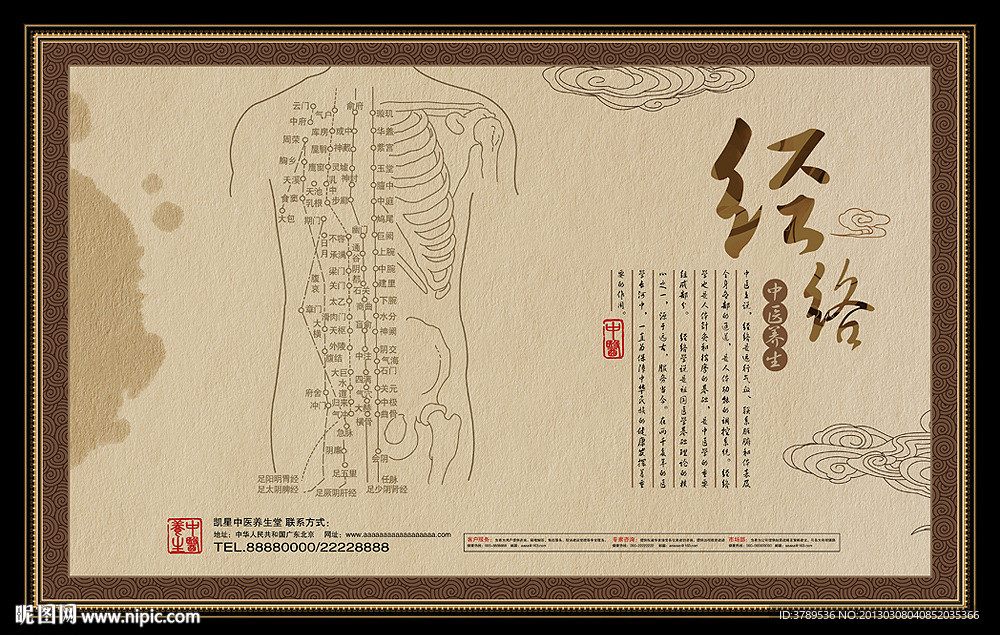 经络
中医养生
中医上说，经络是运行气血、联系脏腑和体表及
全身各部的通道，是人体功能的调控系统。经络
学也是人体针灸和按摩的基础，是中医学的重要
组成部分。 经络学说是祖国医学基础理论的核
心之一，源于远古，服务当今。在两千多年的医
学长河中，一直为保障中华民族的健康发挥着重
要的作用。
中醫
云门
气户
俞府
璇玑
中府
库房
彧中
华盖
周荣
屋翳
神藏
紫宫
胸乡
膺窗
灵墟
玉堂
天溪
乳中
神封
膻中
食窦
天池
乳根
步廊
中庭
大包
期门
鸠尾
幽门
不容
巨阙
日月
承满
通谷
上脘
梁门
阴都
中脘
腹哀
关门
石关
建里
太乙
商曲
下脘
章门
滑肉门
水分
大横
天枢
肓俞
神阙
外陵
中注
阴交
腹结
气海
石门
大巨
四满
府舍
水道
气穴
关元
冲门
归来
大赫
中极
气冲
横骨
曲骨
急脉
阴廉
会阴
足五里
足阳明胃经
任脉
足太阴脾经
足厥阴肝经
足少阴肾经
中醫養生
凯星中医养生堂 联系方式：
地址：中华人民共和国广东北京 网址：www.aaaaaaaaaaaaaaaaaa.com
TEL.88880000/22228888
客户服务：
专家咨询：
市场部：
昵图网 www.nipic.com
ID:3789536 NO:20130308040852035366